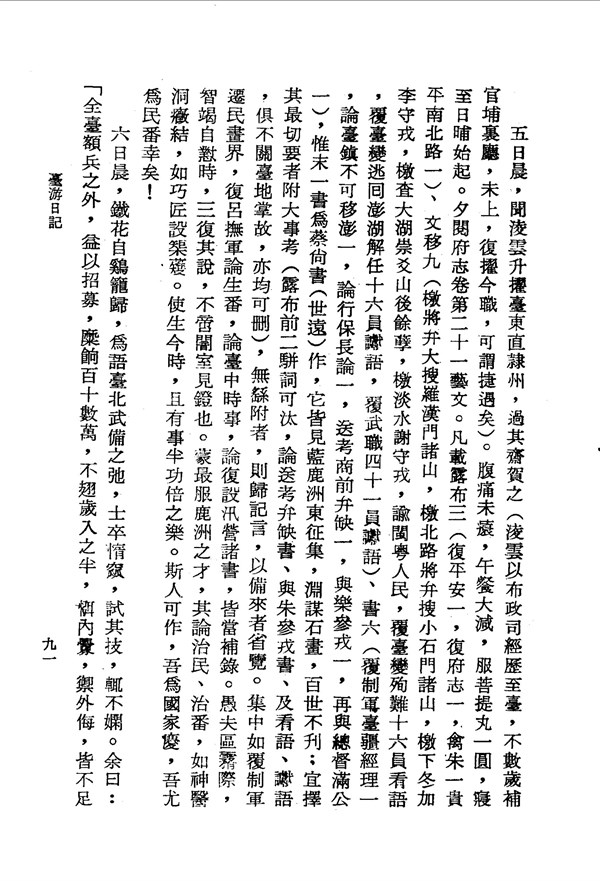 五日晨，聞淩雲升擢臺東直隸州，過其齋賀之（淩雲以布政司經歷至臺，不數歲補
官埔裏廳，未上，復擢今職，可謂捷遇矣）。腹痛未痊，午餐大減，服菩提丸一圓，寢
至日晡始起。夕閱府志卷第二十一藝文。凡載露布三（復平安一，復府志一，禽朱一貴
平南北路一）、文移九（檄將弁大搜羅漢門諸山，檄北路將弁搜小石門諸山，檄下冬加
李守戎，檄查大湖崇爻山後餘孽，檄淡水謝守戎，諭閩粵人民，覆臺變殉難十六員看語
，覆臺變逃回澎湖解任十六員讞語，覆武職四十一員讞語）、書六（覆制軍臺疆經理一
，論臺鎮不可移澎一，論行保長論一，送考商前弁缺一，與樂參戎一，再與總督滿公
一），惟末一書爲蔡尙書（世遠）作，它皆見藍鹿洲東征集，淵謀石畫，百世不刋；宜擇
其最切要者附大事考（露布前二駢詞可汰，論送考弁缺書、與朱參戎書、及看語、讞語
，俱不關臺地掌故，亦均可刪），無繇附者，則歸記言，以備來者省覽。集中如覆制軍
遷民畫界，復呂撫軍論生番，論臺中時事，論復設汛營諸書，皆當補錄。愚夫區霿際，
智竭自懟時，三復其說，不啻闇室見鐙也。蒙最服鹿洲之才，其論治民、治番，如神醫
洞癥結，如巧匠設榘矱。使生今時，且有事半功倍之樂。斯人可作，吾爲國家慶，吾尤
爲民番幸矣！
六日晨，鐵花自鷄籠歸，爲語臺北武備之弛，士卒惰窳，試其技，輒不嫻。余曰：
「全臺額兵之外，益以招募，糜餉百十數萬，不翅歲入之半，內，禦外侮，皆不足
臺游日記
九一